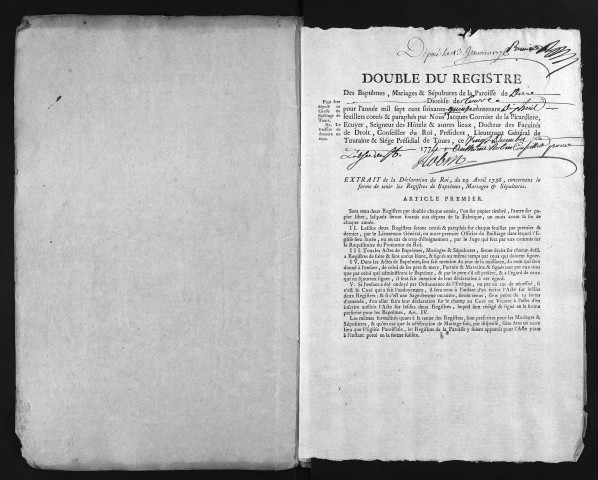 Déposé le 13 Janvier 1776
DOUBLE DU REGISTRE
Des Baptêmes, Mariages & Sépultures de la Paroisse de
Diocèse de Tours
pour l'année mil sept cent soixante-quinze contenant
feuillets cotés & paraphés par Nous Jacques Cormier de la Picardiere,
Ecuyer, Seigneur des Hôtels & autres lieux, Docteur des Facultés
de Droit, Conseiller du Roi, Président, Lieutenant Général de
Touraine & Siége Présidial de Tours, ce
1774
EXTRAIT de la Déclaration du Roi, du 29 Avril 1736, concernant la
forme de tenir les Registres de Baptêmes, Mariages & Sépultures.
ARTICLE PREMIER.
Seront tenus deux Registres par double chaque année, l'un sur papier timbré, l'autre sur papier
libre, lesquels seront fournis aux dépens de la Fabrique, un mois avant la fin de
chaque année.
II. Lesdits deux Registres seront cotés & paraphés sur chaque feuillet par premier &
dernier, par le Lieutenant Général, ou autre premier Officier du Bailliage dans lequel l'Eglise
sera située, ou en cas de trop d'éloignement, par le Juge qui sera par eux commis sur
le Requisitoire du Procureur du Roi.
III. Tous les Actes de Baptêmes, Mariages & Sépultures, seront écrits sur chacun desd.
Registres de suite & sans aucun blanc, & signés au même temps par ceux qui doivent signer.
IV. Dans les Actes de Baptêmes, sera fait mention du jour de la naissance, du nom qui sera
donné à l'enfant, de celui de ses pere & mere, Parrain & Marraine & signés tant par eux tous
que par celui qui administrera le Baptême, & par le pere s'il est présent, & à l'égard de ceux
qui ne sçauront signer, il sera fait mention de leur déclaration à cet égard.
V. Si l'enfant a été ondoyé par Ordonnance de l'Evêque, ou par un cas de nécessité, si
c'est le Curé qui a fait l'ondoyement, il sera tenu à l'instant d'en écrire l'Acte sur lesdits
deux Registres; & si c'est une Sage-femme ou autre, seront tenus, sous peine de 10 livres
d'amende, d'en aller faire leur déclaration sur le champ au Curé ou Vicaire à l'effet d'en
inscrire aussitôt l'Acte sur lesdits deux Registres, lequel sera rédigé & signé en la forme
prescrite pour les Baptêmes, Art. IV.
Les mêmes formalités quant à la tenue des Registres, sont prescrites pour les Mariages &
Sépultures, & qu'en cas que la célébration de Mariage soit, par dispense, faite dans un autre
lieu que l'Eglise Paroissiale, les Registres de la Paroisse y soient apportés pour l'Acte y être
à l'instant porté en la forme susdite.